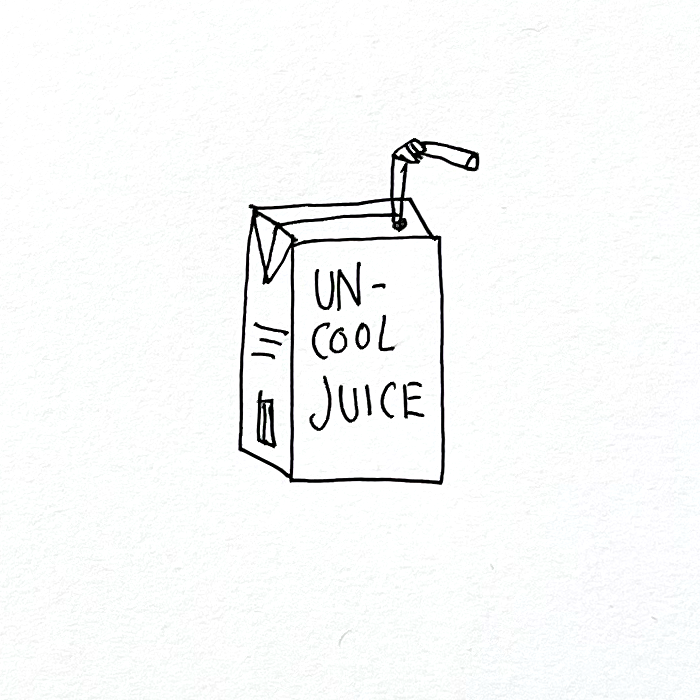 UN-
COOL
JUICE